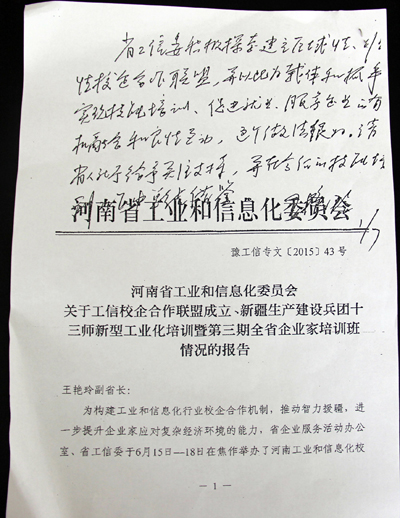 省工信委积极探索建立区域性、行业
性校企合作联盟，并以此为载体和抓手
实施技能培训、促进就业、服务企业的有
机融合和良性互动，这个做法很好。请
省人社厅给予关注支持，并在今后的技能培
河南省工业和信息化委员会
豫工信专文〔2015〕43号
河南省工业和信息化委员会
关于工信校企合作联盟成立、新疆生产建设兵团十
三师新型工业化培训暨第三期全省企业家培训班
情况的报告
王艳玲副省长：
为构建工业和信息化行业校企合作机制，推动智力援疆，进
一步提升企业家应对复杂经济环境的能力，省企业服务活动办公
室、省工信委于6月15日—18日在焦作举办了河南工业和信息化校
— 1 —